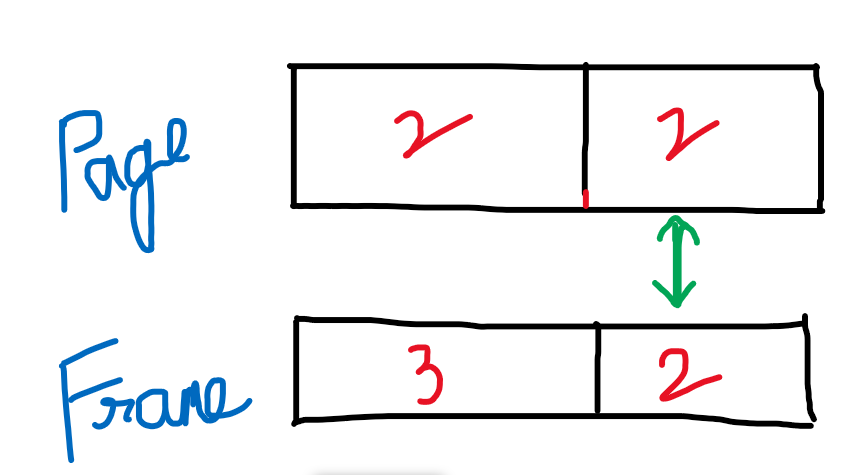 Page 2 2
Frame 3 2